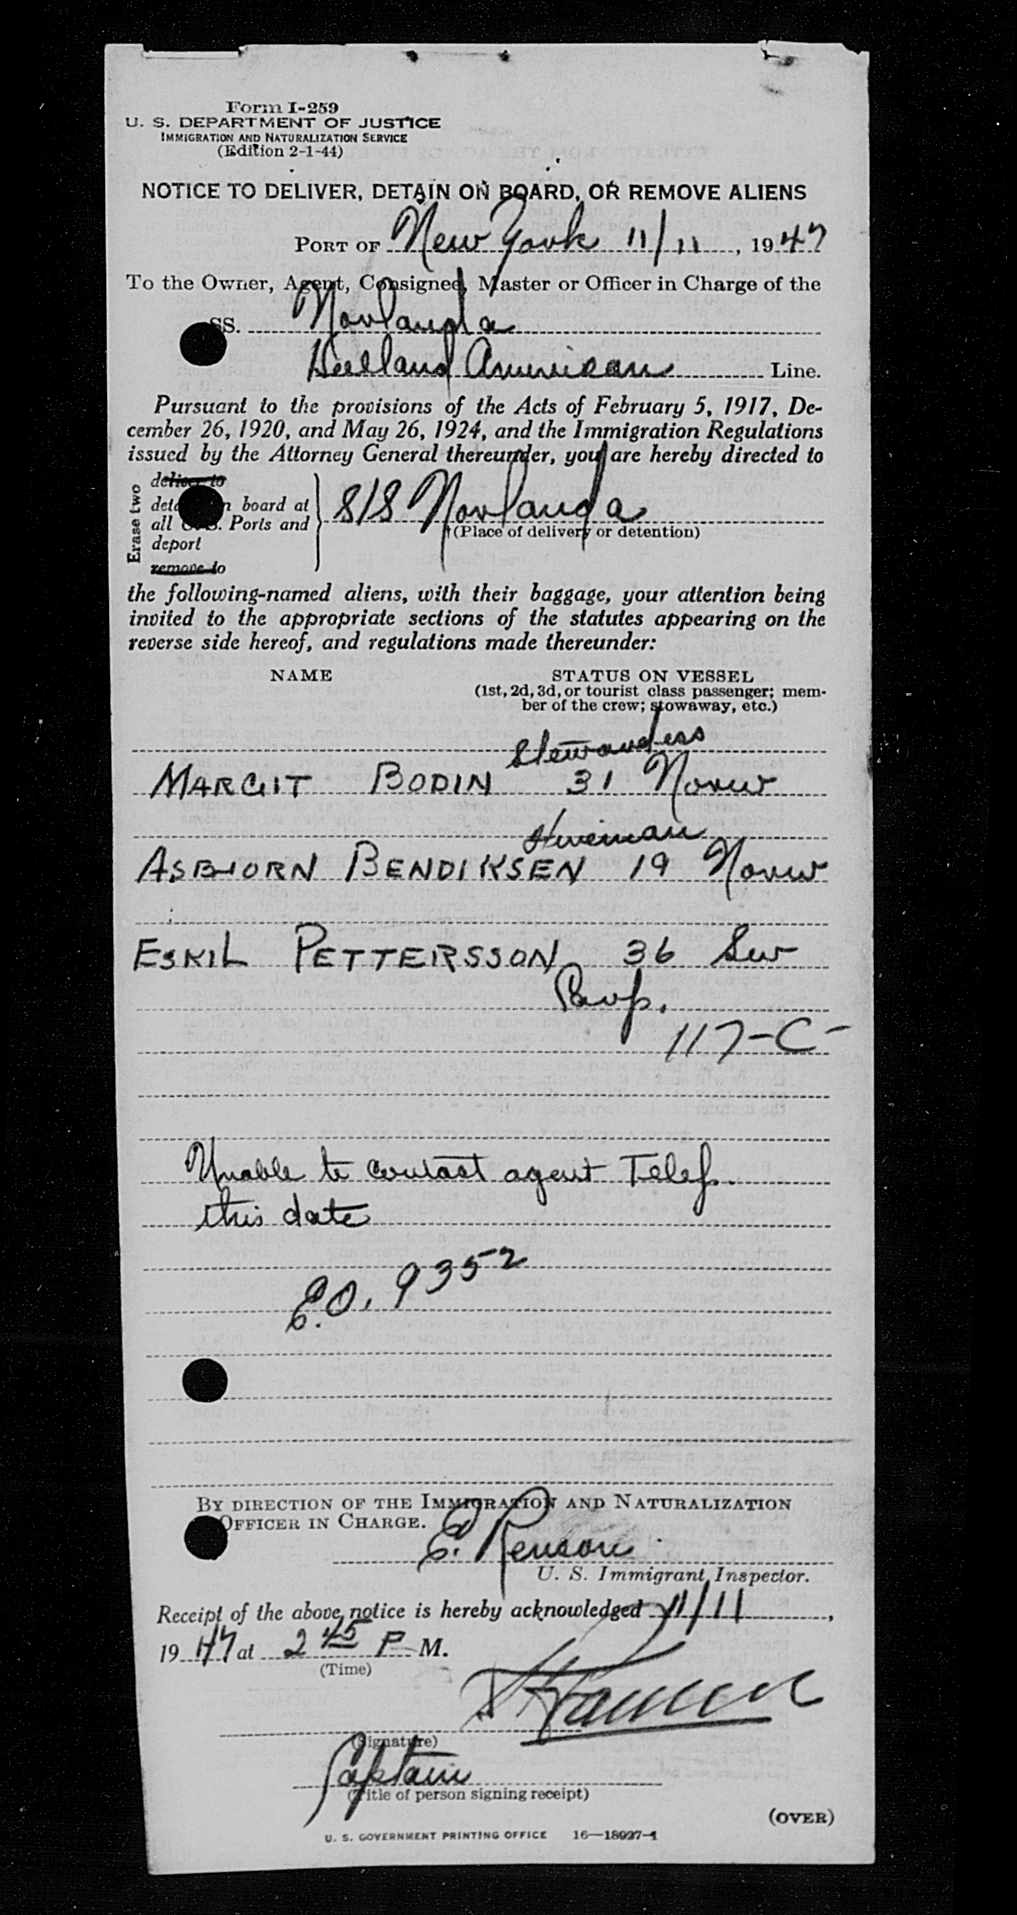 Form I-259
U. S. DEPARTMENT OF JUSTICE
IMMIGRATION AND NATURALIZATION SERVICE
(Edition 2-1-44)
NOTICE TO DELIVER, DETAIN ON BOARD, OR REMOVE ALIENS
PORT OF New York 11/11, 1947
To the Owner, Agent, Consignee, Master or Officer in Charge of the
SS. Norlanda
American Line.
Pursuant to the provisions of the Acts of February 5, 1917, De-
cember 26, 1920, and May 26, 1924, and the Immigration Regulations
issued by the Attorney General thereunder, you are hereby directed to
Erase two
deliver to
detain on board at
all U.S. Ports and
deport
remove to
S/S Norlanda
(Place of delivery or detention)
the following-named aliens, with their baggage, your attention being
invited to the appropriate sections of the statutes appearing on the
reverse side hereof, and regulations made thereunder:
NAME STATUS ON VESSEL
(1st, 2d, 3d, or tourist class passenger; mem-
ber of the crew; stowaway, etc.)
Stewardess
MARGIT BODIN 31 Norw
ASBJORN BENDIKSEN 19 Norw
ESKIL PETTERSSON 36 Sw
117-C-
Unable to contact agent Telef.
this date
E.O. 9352
BY DIRECTION OF THE IMMIGRATION AND NATURALIZATION
OFFICER IN CHARGE.
E. Renson
U. S. Immigrant Inspector.
Receipt of the above notice is hereby acknowledged 11/11,
1947 at 2 45 P M.
(Time)
(Signature)
Captain
(Title of person signing receipt)
(OVER)
U. S. GOVERNMENT PRINTING OFFICE 16—18027-1